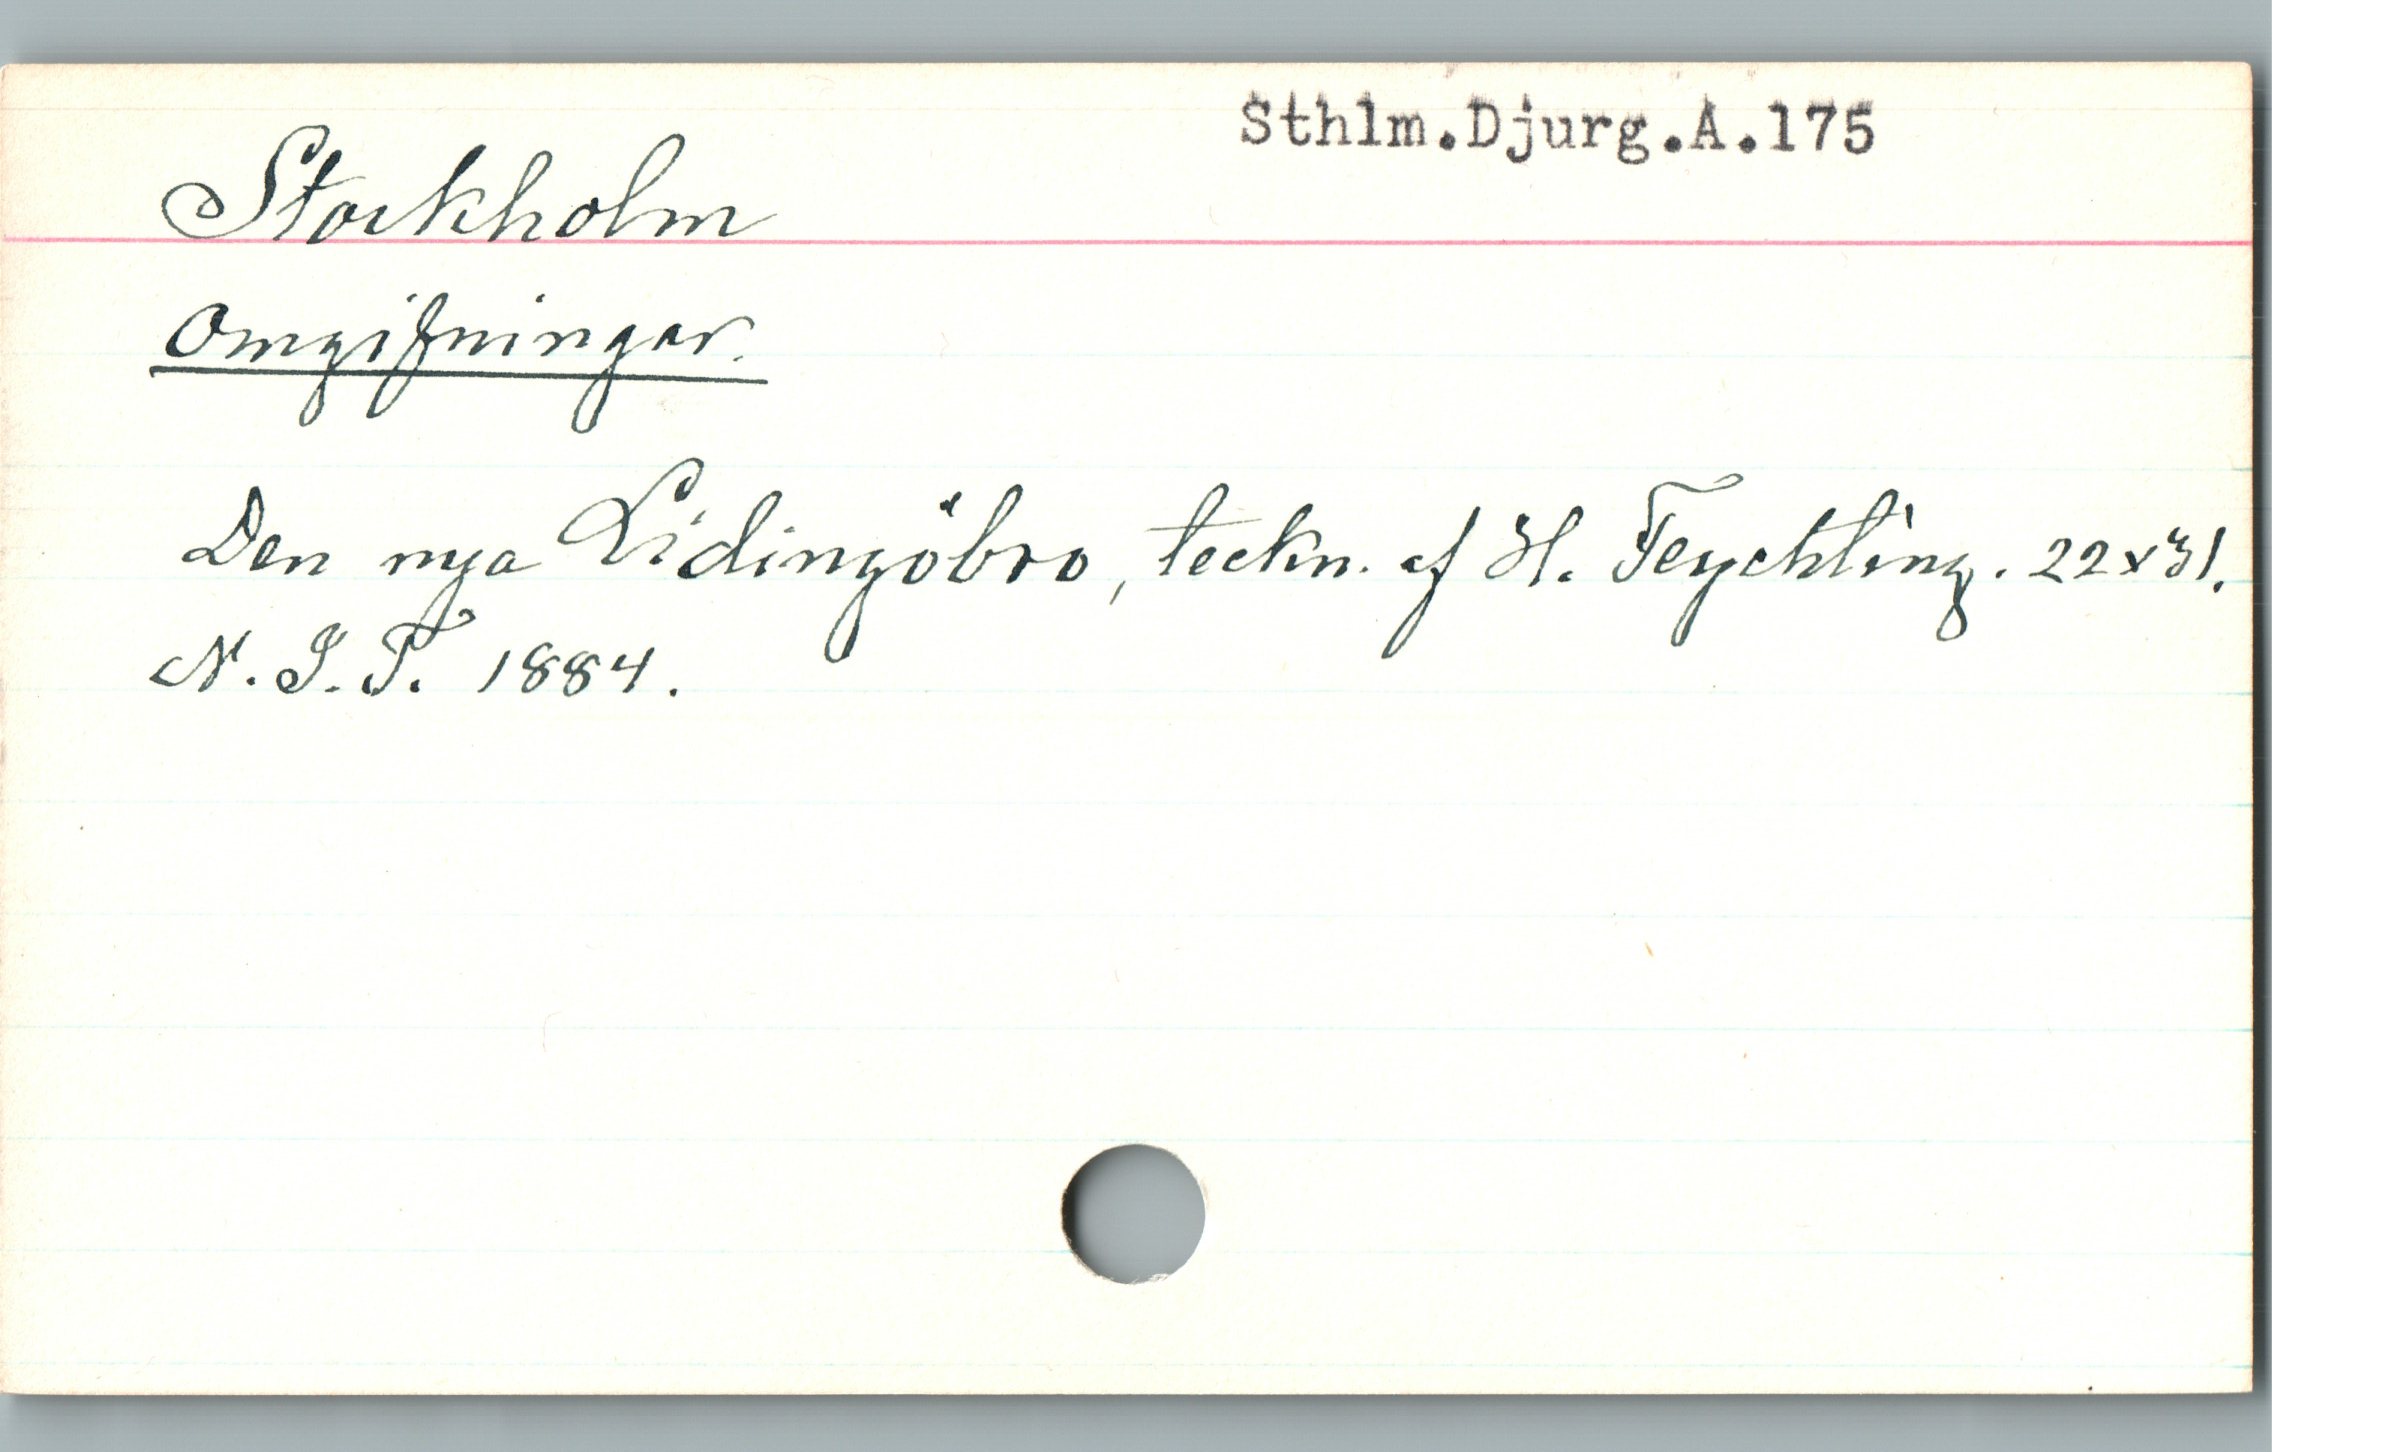 Sthlm.Djurg.A.175
Stockholm
Omgifningar.
Den nya Lidingöbro, teckn. af H. Feychting. 22x31.
N. I. T. 1884.